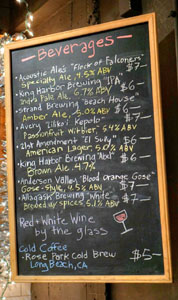 Beverages
Acoustic Ales "Flock of Falconers" $7
Specialty Ale, 4.5% ABV
King Harbor Brewing "IPA" $6
India Pale Ale, 6.7% ABV
Strand Brewing "Beach House" $6
Amber Ale, 5.0% ABV
Avery "Liliko'i Kepolo" $7
Passionfruit Witbier, 5.4% ABV
21st Amendment "El Sully" $6
American Lager, 5.0% ABV
King Harbor Brewing $6
Brown Ale 4.7%
Anderson Valley "Blood Orange Gose" $7
Gose-style, 4.5% ABV
Allagash Brewing "White" $7
Bready w/ spices, 5.1% ABV
Red + White Wine
by the glass
Cold Coffee
- Rose Park Cold Brew $5
Long Beach, CA